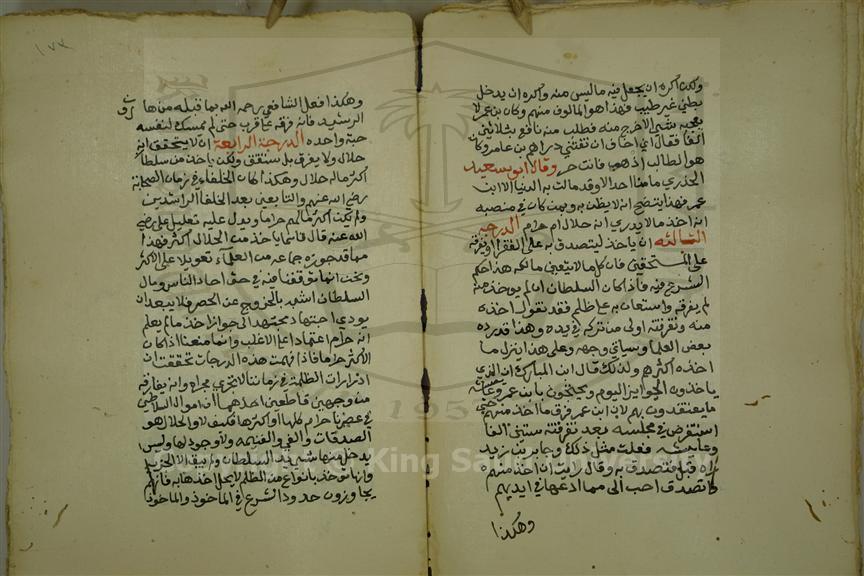 ولكن اكره ان يجعل فيه ماليس منه واكره ان يدخل
بطني غير طيب فهذا هو المالوف منهم وكان بن عمر لا
يعجبه شي الا خرج منه فطلب منه نافع بثلاثين
الفا فقال اني اخاف ان تفتنني دراهم بن عامر وكان
هو الطالب اذهب فانت حر وقال ابو سعيد
الخدري ما منا احد الا وقد مالت به الدنيا الا ابن
عمر فبهذا يتضح انه لا يظن به وبمن كان في منصبه
انه اخذ مالا يدري انه حلال ام حرام الدرجه
الثالثه ان ياخذ ليتصدق به على الفقرا او يفرقه
على المستحقين فان كل مالا يتعين مالكه هذا حكم
الشرع فيه فاذا كان السلطان ان لم يوخذ منه
لم يفرقه واستعان به على ظلم فقد نقول اخذه
منه وتفرقته اولى من تركه في يده وهذا قد راه
بعض العلما وسياتي وجهه وعلى هذا ينزل ما
اخذه اكثرهم ولذلك قال ابن المبارك ان الذي
ياخذون الجوايز اليوم ويحتجون بابن عمر وعائشه
ما يقتدون بهم لان ابن عمر فرق ما اخذ منهم حتى
استقرض في مجلسه بعد تفرقته ستين الفا
وعايشه فعلت مثل ذلك وجابر بن زيد
راه قبل فتصدق به وقال رايت ان اخذ منهم
واتصدق احب الى مما ادعها في ايديهم
وهكذا
١٧٣
وهكذا فعل الشافعي رحمه الله بما قبله من هارون
الرشيد فانه فرقه عن قرب حتى لم يمسك لنفسه
حبة واحده الدرجة الرابعة ان لا يتحقق انه
حلال ولا يفرق بل يستنفق ولكن ياخذ من سلطان
اكثر ماله حلال وهكذا كان الخلفاء في زمان الصحابة
رضي الله عنهم والتابعين بعد الخلفا الراشدين
ولم يكن اكثر مالهم حراما ويدل عليه تعليل علي رضي
الله عنه قال فانما ياخذ من الحلال اكثر فهذا
مما قد جوزه جماعه من العلماء تعويلا على الاكثر
ونحن انما توقفنا فيه في حق احاد الناس ومال
السلطان اشبه بالخروج عن الحصر فلا يبعد ان
يودي اجتهاد مجتهد الى جواز اخذ ما لم يعلم
انه حرام اعتمادا على الاغلب وانما منعنا اذا كان
الاكثر حراما فاذا فهمت هذه الدرجات تحققت ان
ادرارات الظلمة في زماننا لا تجري مجراه وانها تفارقه
من وجهين قاطعين احدهما ان اموال السلاطين
في عصرنا حرام كلها او اكثرها فكيف لا والحلال هو
الصدقات والفي والغنيمه ولا وجود لها وليس
يدخل منها شي في يد السلطان ولم يبق الا الجزيه
وانها توخذ بانواع من الظلم لا يحل اخذها به فانهم
يجاوزون حدود الشرع في الماخوذ والماخوذ